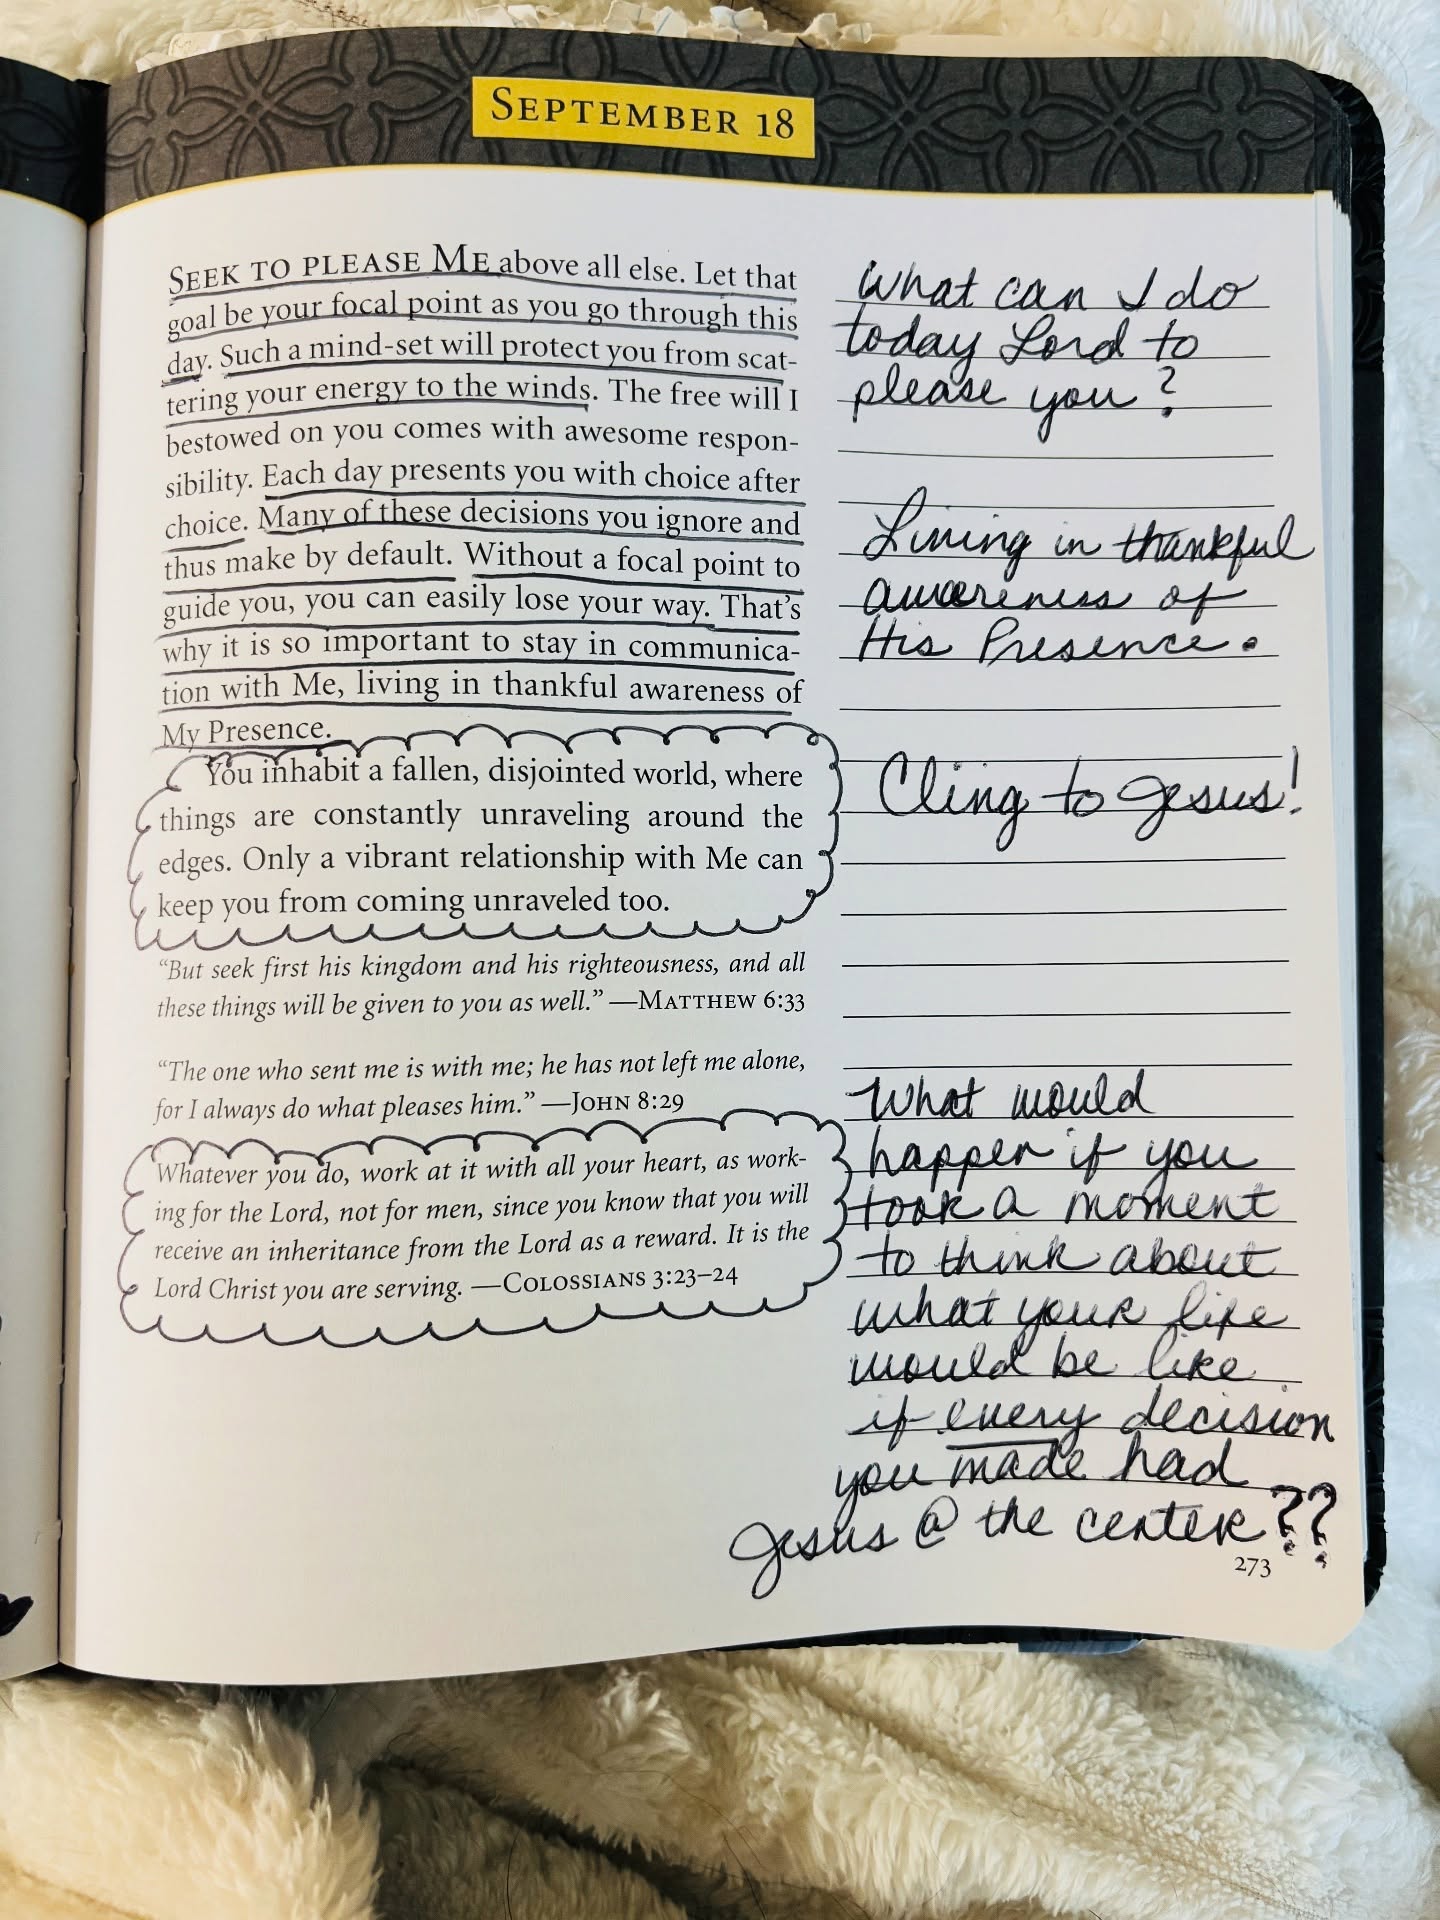 SEPTEMBER 18
SEEK TO PLEASE ME above all else. Let that
goal be your focal point as you go through this
day. Such a mind-set will protect you from scat-
tering your energy to the winds. The free will I
bestowed on you comes with awesome respon-
sibility. Each day presents you with choice after
choice. Many of these decisions you ignore and
thus make by default. Without a focal point to
guide you, you can easily lose your way. That's
why it is so important to stay in communica-
tion with Me, living in thankful awareness of
My Presence.
You inhabit a fallen, disjointed world, where
things are constantly unraveling around the
edges. Only a vibrant relationship with Me can
keep you from coming unraveled too.
"But seek first his kingdom and his righteousness, and all
these things will be given to you as well." —MATTHEW 6:33
"The one who sent me is with me; he has not left me alone,
for I always do what pleases him." —JOHN 8:29
Whatever you do, work at it with all your heart, as work-
ing for the Lord, not for men, since you know that you will
receive an inheritance from the Lord as a reward. It is the
Lord Christ you are serving. —COLOSSIANS 3:23–24
What can I do
today Lord to
please you?
Living in thankful
awareness of
His Presence.
Cling to Jesus!
What would
happen if you
took a moment
to think about
what your life
would be like
if every decision
you made had
Jesus @ the center??
273